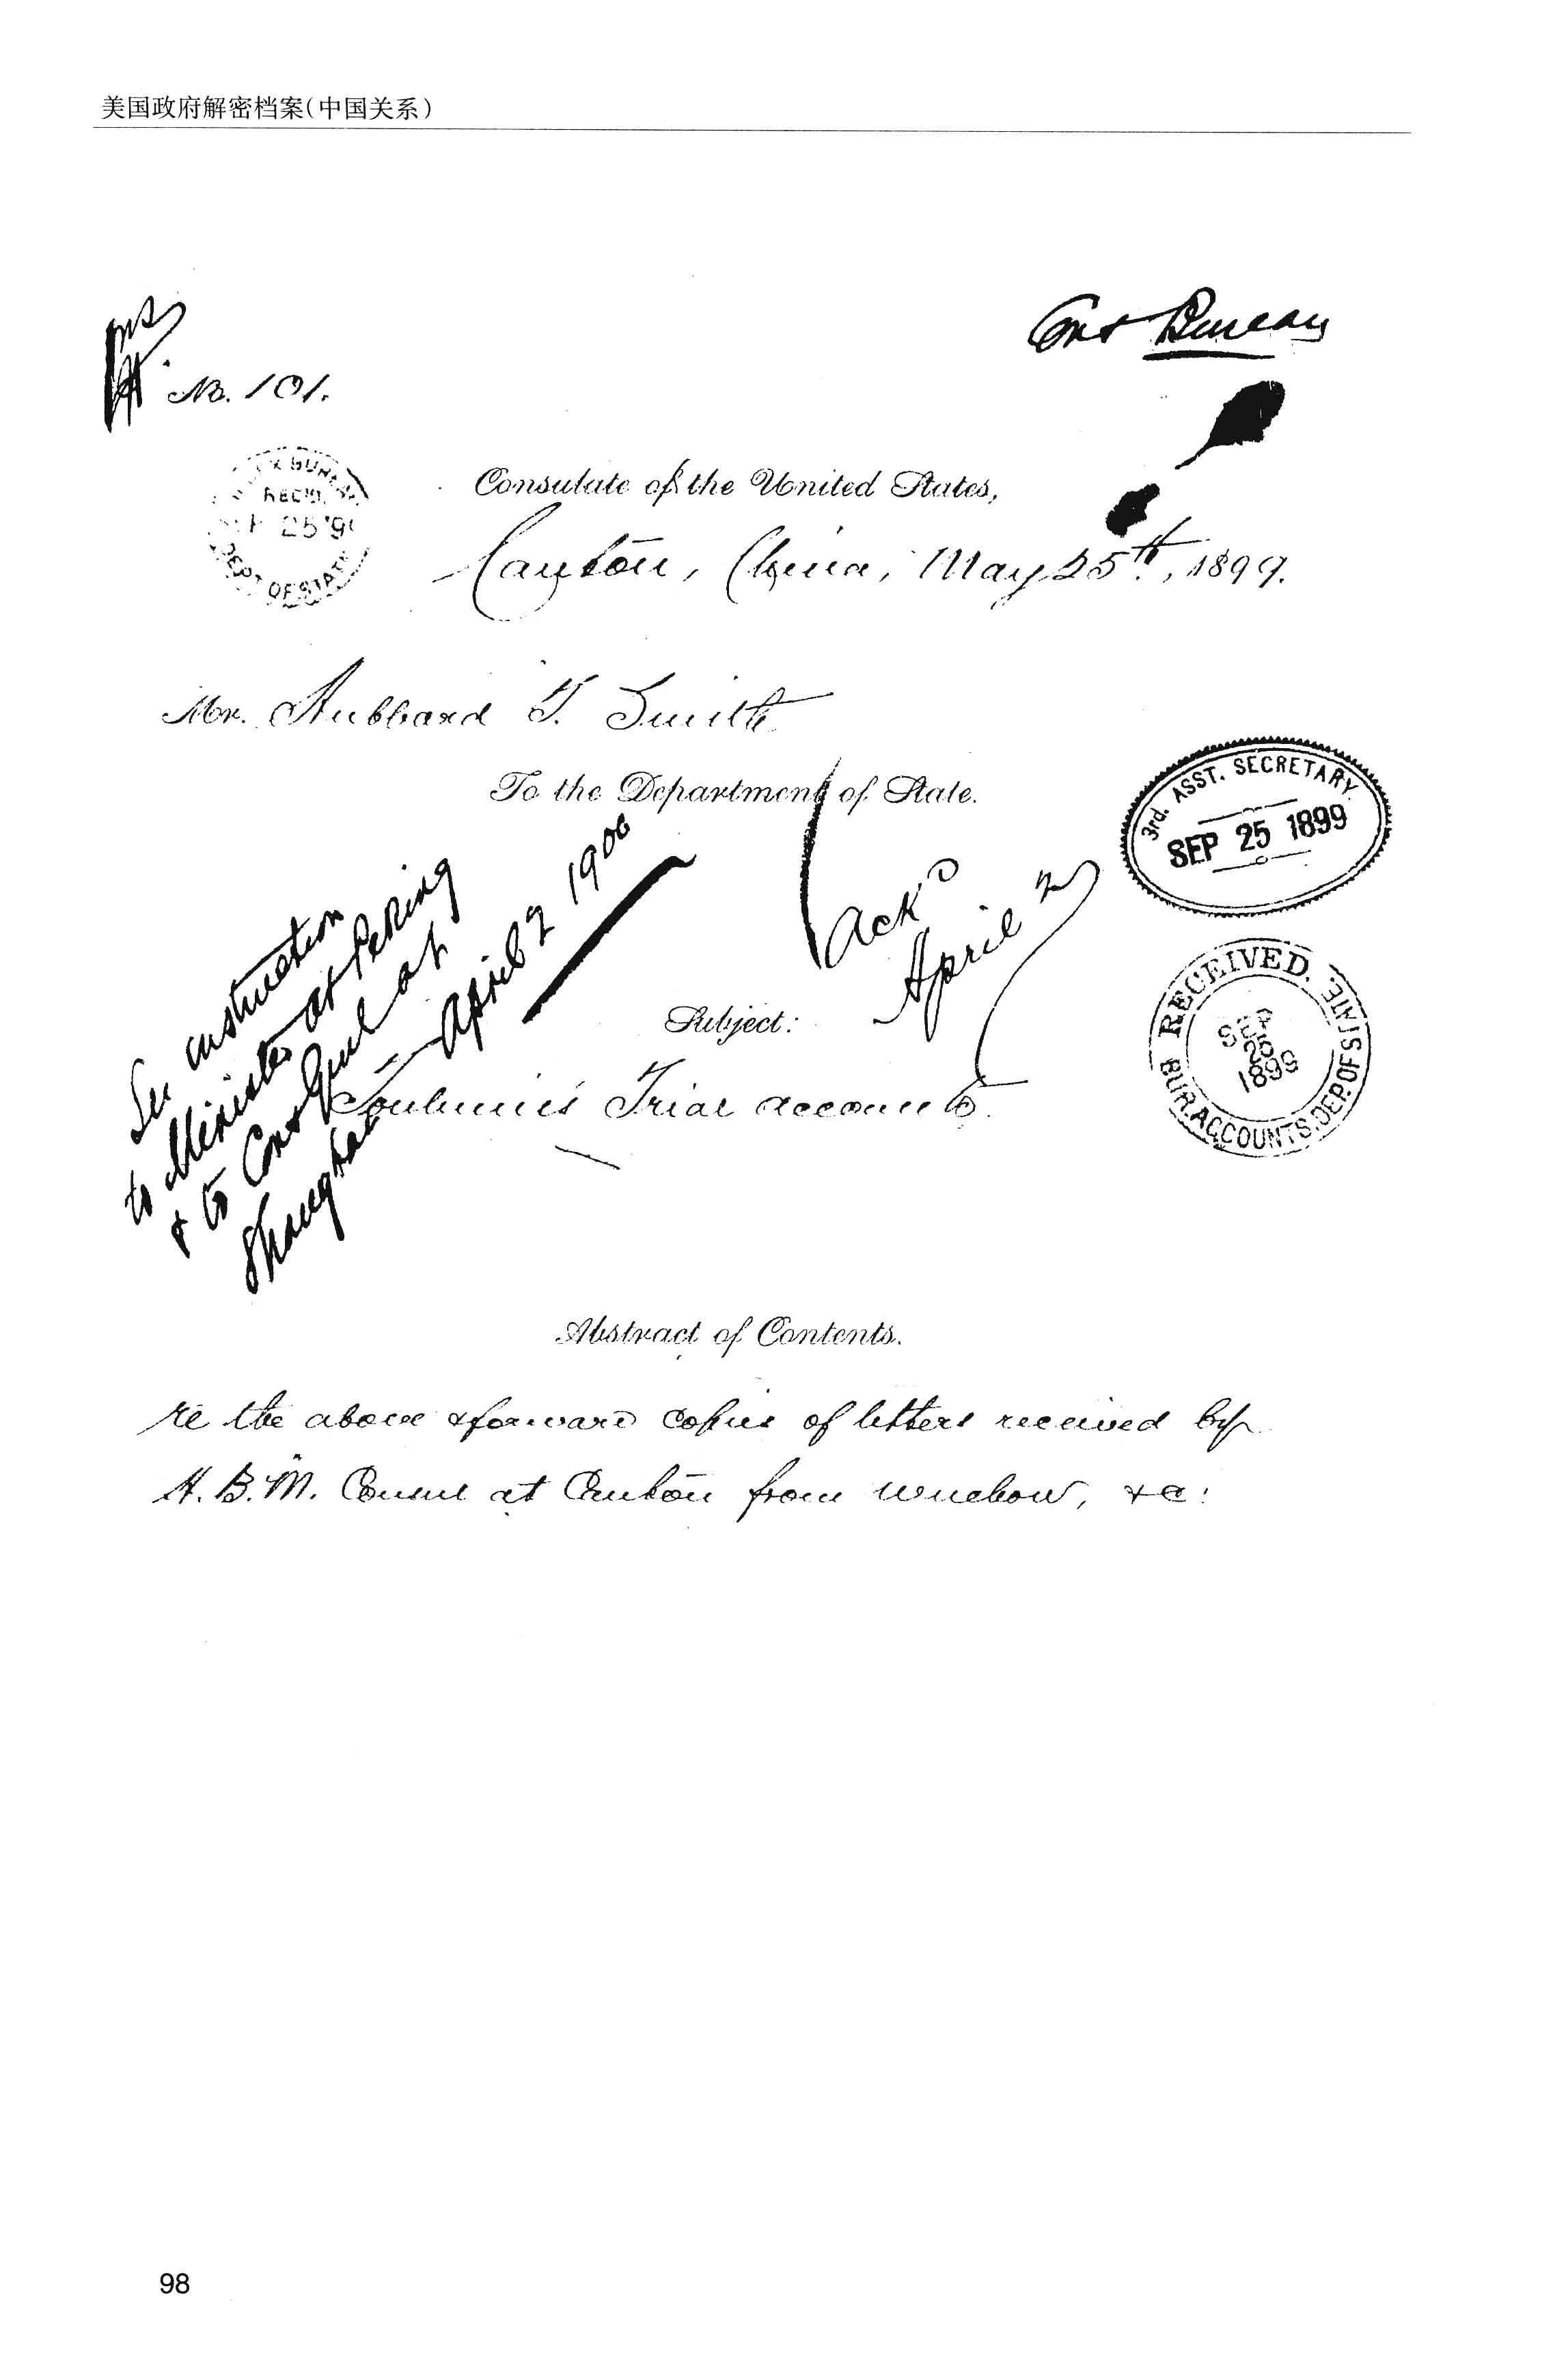 美国政府解密档案(中国关系)
Cons Bureau
No. 101.
BUR
REC'D.
25 '9
DEPT OF STATE
Consulate of the United States,
Canton, China, May 25th, 1899.
Mr. Hubbard T. Smith
To the Department of State.
3rd. ASST. SECRETARY.
SEP 25 1899
See instruction
to Minister at Peking
& to Cons Genl at
Shanghai April 2 1900
Ack'd
April 2
RECEIVED.
SEP
25
1899
BUR. ACCOUNTS. DEP. OF STATE
Subject:
Trial accounts.
Abstract of Contents.
re the above & forward copies of letters received by
H. B. M. Consul at Canton from Wuchow, &c:
98